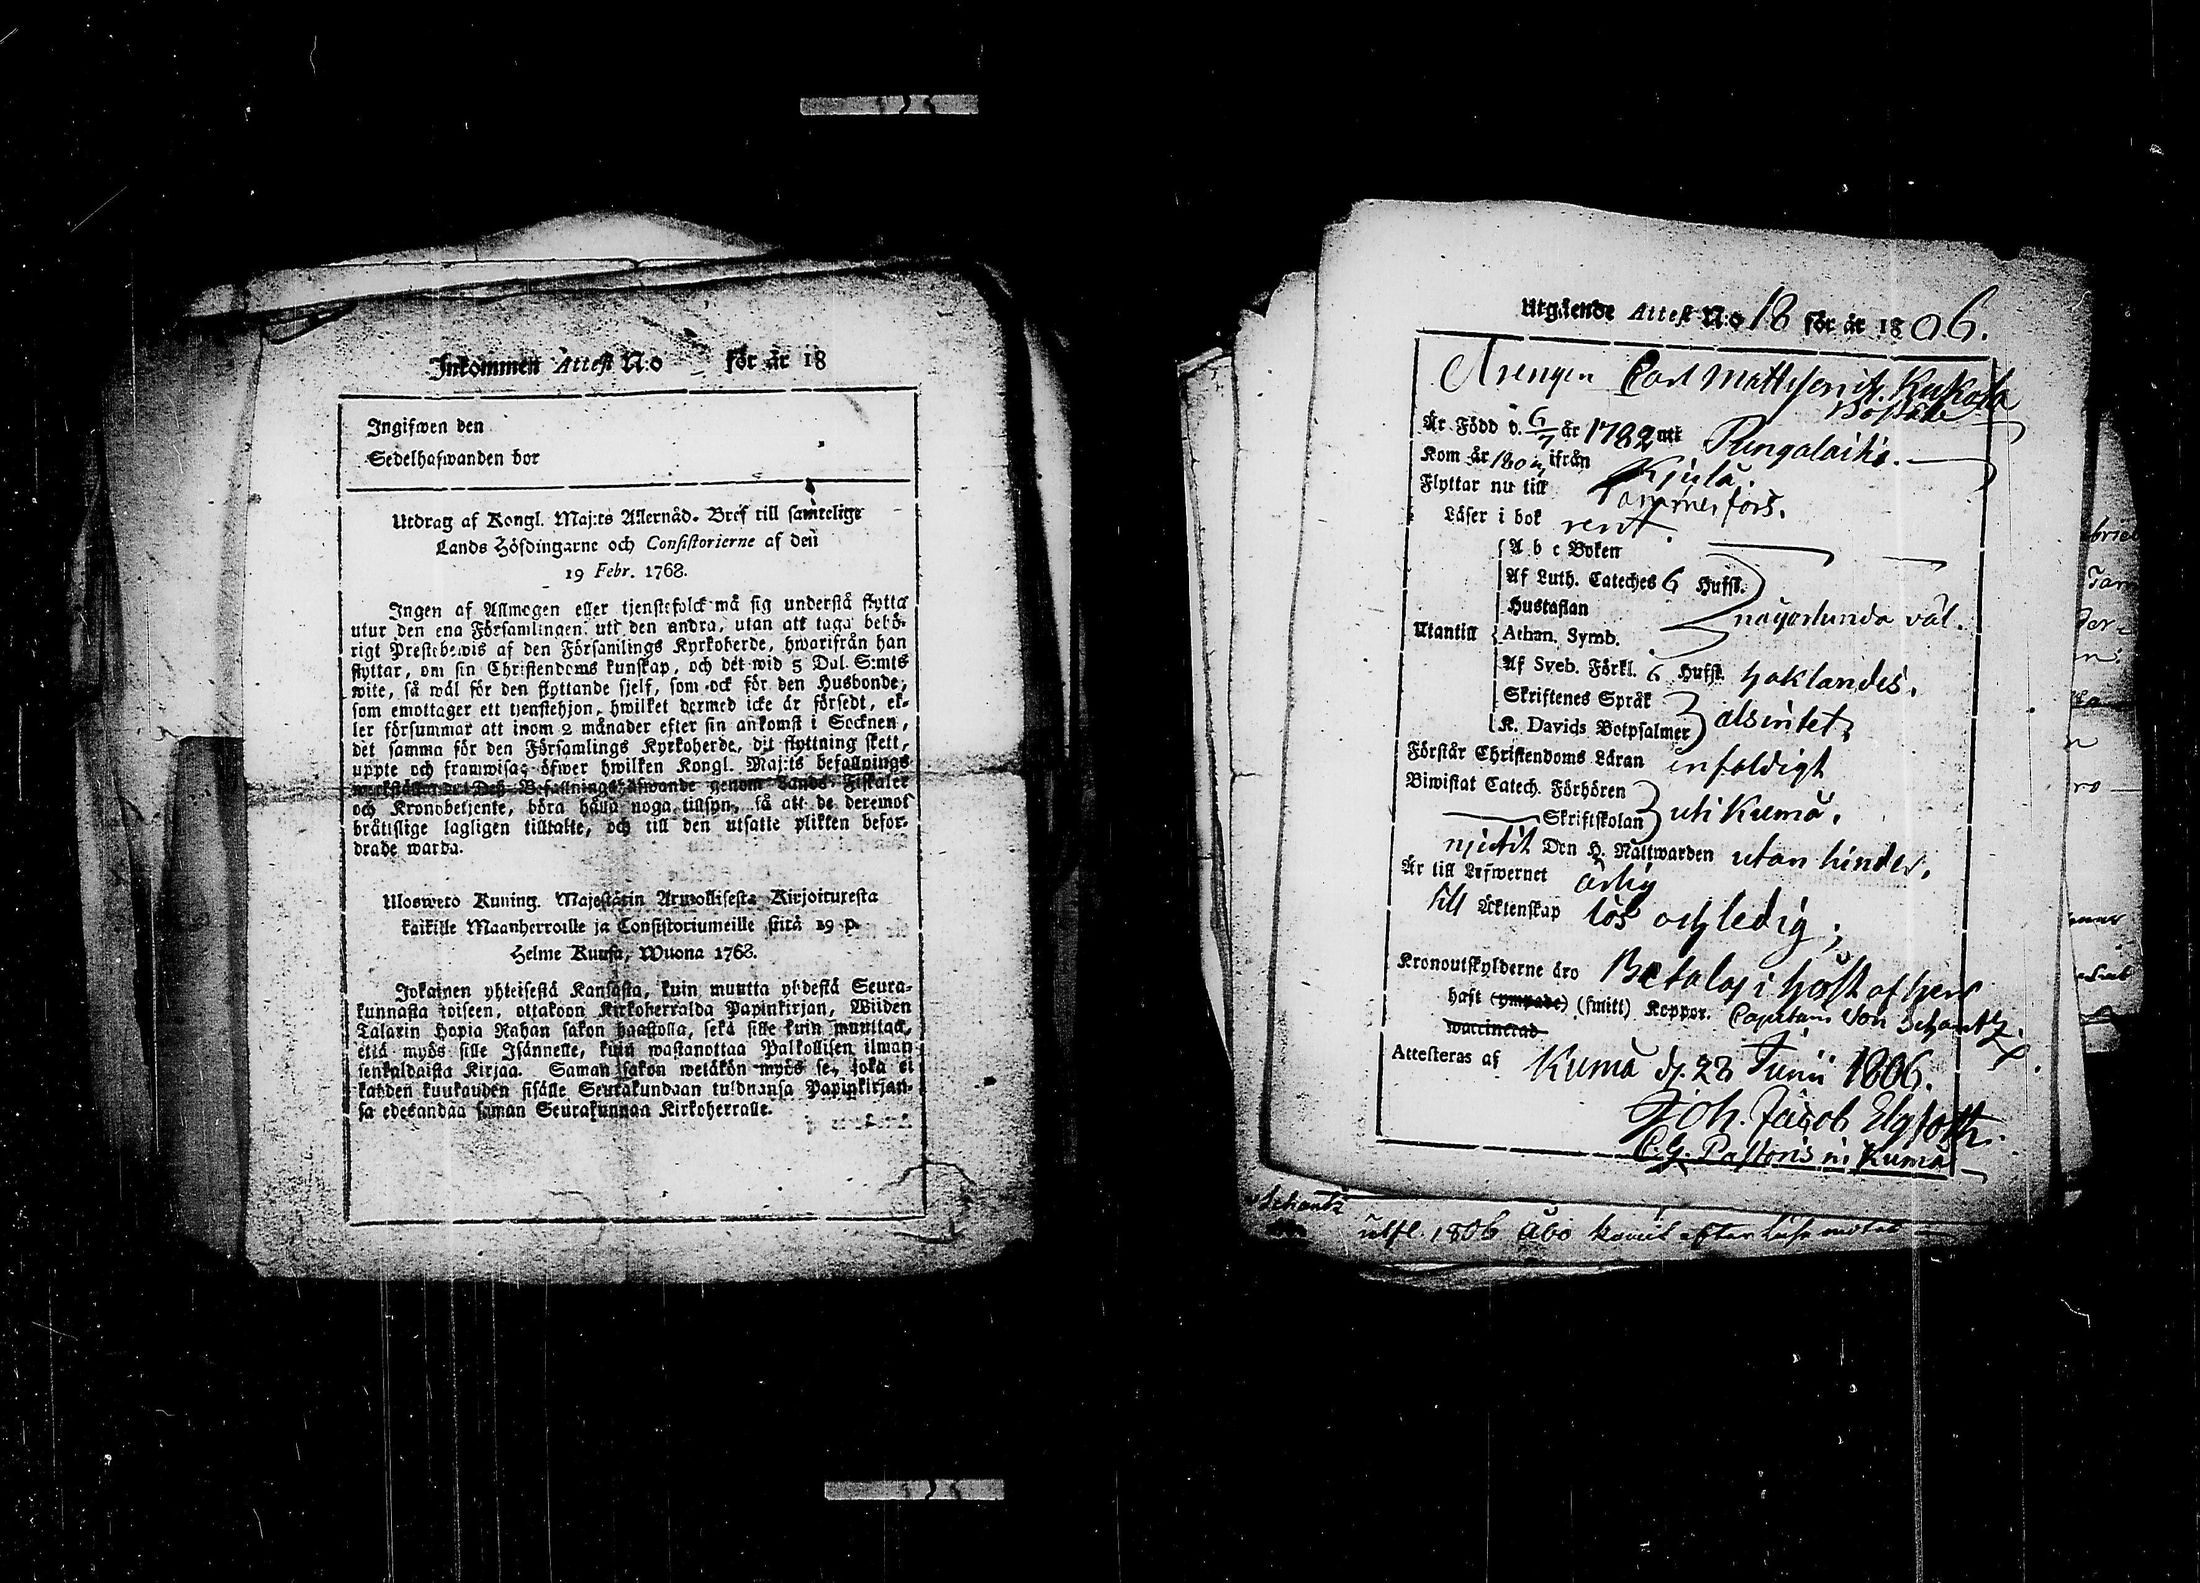 Inkommen Attest N:o för år 18
Ingifwen den
Sedelhafwanden bor
Utdrag af Kongl. Maj:ts Allernåd. Bref till samtelige
Lands Höfdingarne och Consistorierne af den
19 Febr. 1768.
Ingen af Allmogen eller tjenstefolck må sig understå flytta
utur den ena Församlingen uti den andra, utan att taga behö-
rigt Prestebewis af den Församlings Kyrkoherde, hwarifrån han
flyttar, om sin Christendoms kunskap, och det wid 5 Dal. S:mts
wite, så wäl för den flyttande sjelf, som ock för den Husbonde,
som emottager ett tjenstehjon, hwilket dermed icke är försedt, el-
ler försummar att inom 2 månader efter sin ankomst i Socknen,
det samma för den Församlings Kyrkoherde, dit flyttning skett,
uppte och framwisa; öfwer hwilken Kongl. Maj:ts befallnings
Befallningshafwande genom Lands Fiskaler
och Kronobetjente, böra hålla noga tillsyn, så att de deremot
bråttslige lagligen tilltalte, och till den utsatte plikten befor-
drade warda.
Ulosweto Kuning. Majestätin Armollisesta Kirjoituxesta
kaikille Maanherroille ja Consistoriumeille siitä 19 p.
Helme Kuusa, Wuona 1768.
Jokainen yhteisestä Kansasta, kuin muutta yhdestä Seura-
kunnasta toiseen, ottakoon Kirkoherralda Papinkirjan, Wiiden
Talarin Hopia Rahan sakon haastolla, sekä sille kuin muuttaa,
että myös sille Isännelle, kuin wastanottaa Palkollisen ilman
senkaldaista Kirjaa. Saman sakon wetäkön myös se, joka ei
kahden kuukauden sisälle Seurakundaan tuldnansa Papinkirjan-
sa edesandaa saman Seurakunnan Kirkoherralle.
Utgående Attest N:o 18 för år 1806.
Drengen Carl Mattsson
Är Född d. 6/7 år 1782 uti Pungalaitio.
Kom år ifrån Kjulå.
Flyttar nu till Tammerfors.
Läser i bok rent.
A b c Boken
Af Luth. Cateches 6 Hufst.
Hustaflan någorlunda väl.
Utantill Athan. Symb.
Af Sveb. Förkl. 6 Hufst. haklandes.
Skriftenes Språk
K. Davids Botpsalmer alsintet,
Förstår Christendoms Läran enfaldigt
Biwistat Catech. Förhören
Skriftskolan uti Kumå.
njutit Den H. Nattwarden utan hinder.
Är till Lefwernet ärlig
till Äcktenskap lös och ledig;
Kronoutskylderne äro Betalas i höst af herr
haft (ympade) (smitt) Koppor. Capitain von Schantz.
waccinerad
Attesteras af Kumå d. 28 Junii 1806.
Joh. Jacob Elgfoth.
C. G. Pastoris in Kumå
Schantz
utfl. 1806 Åbo